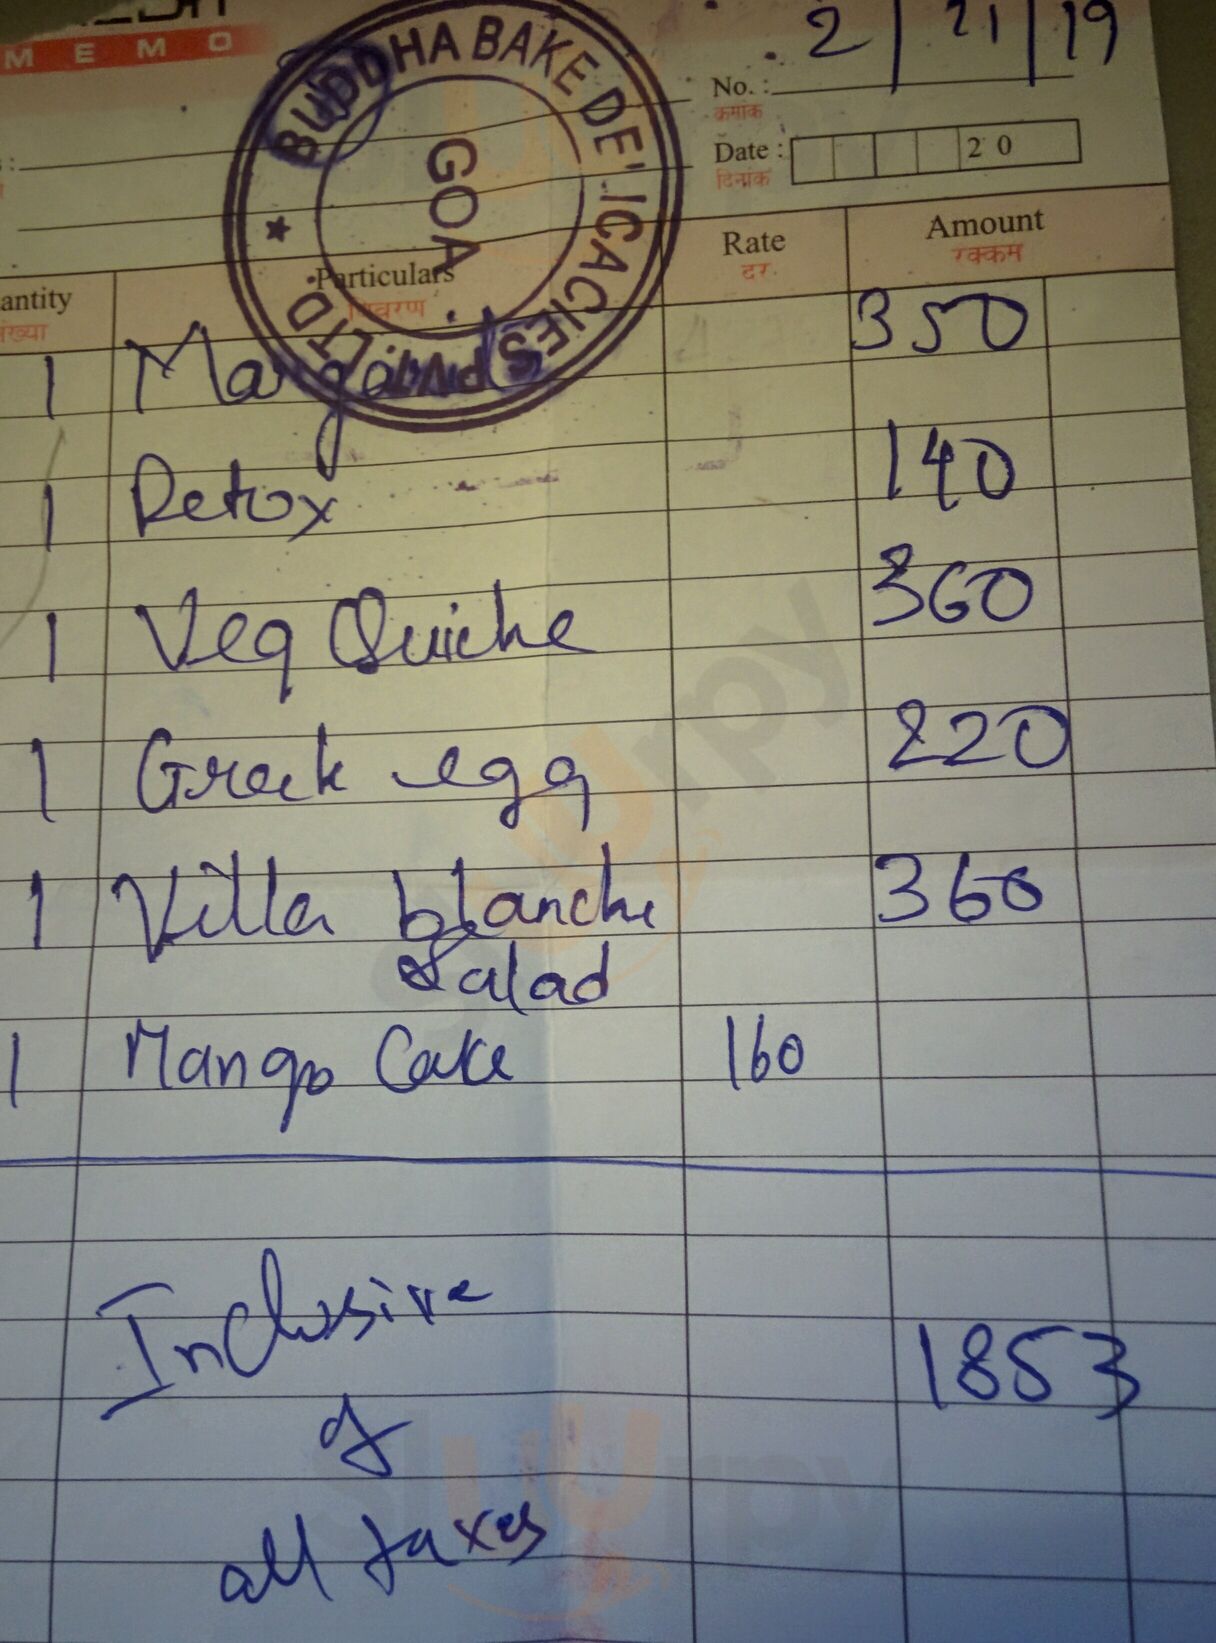 MEMO
2/21/19
No. :
क्रमांक
Date : 20
दिनांक
BUDDHA BAKE DE'ICACIES PVT LTD
GOA
Particulars Rate Amount
विवरण दर रक्कम
antity
ंख्या
1 350
1 Detox 140
1 Veg Quiche 360
1 Greek egg 220
1 Villa blanche 360
Salad
1 Mango Cake 160
Inclusive 1853
of
all taxes
slurpy
slurpy